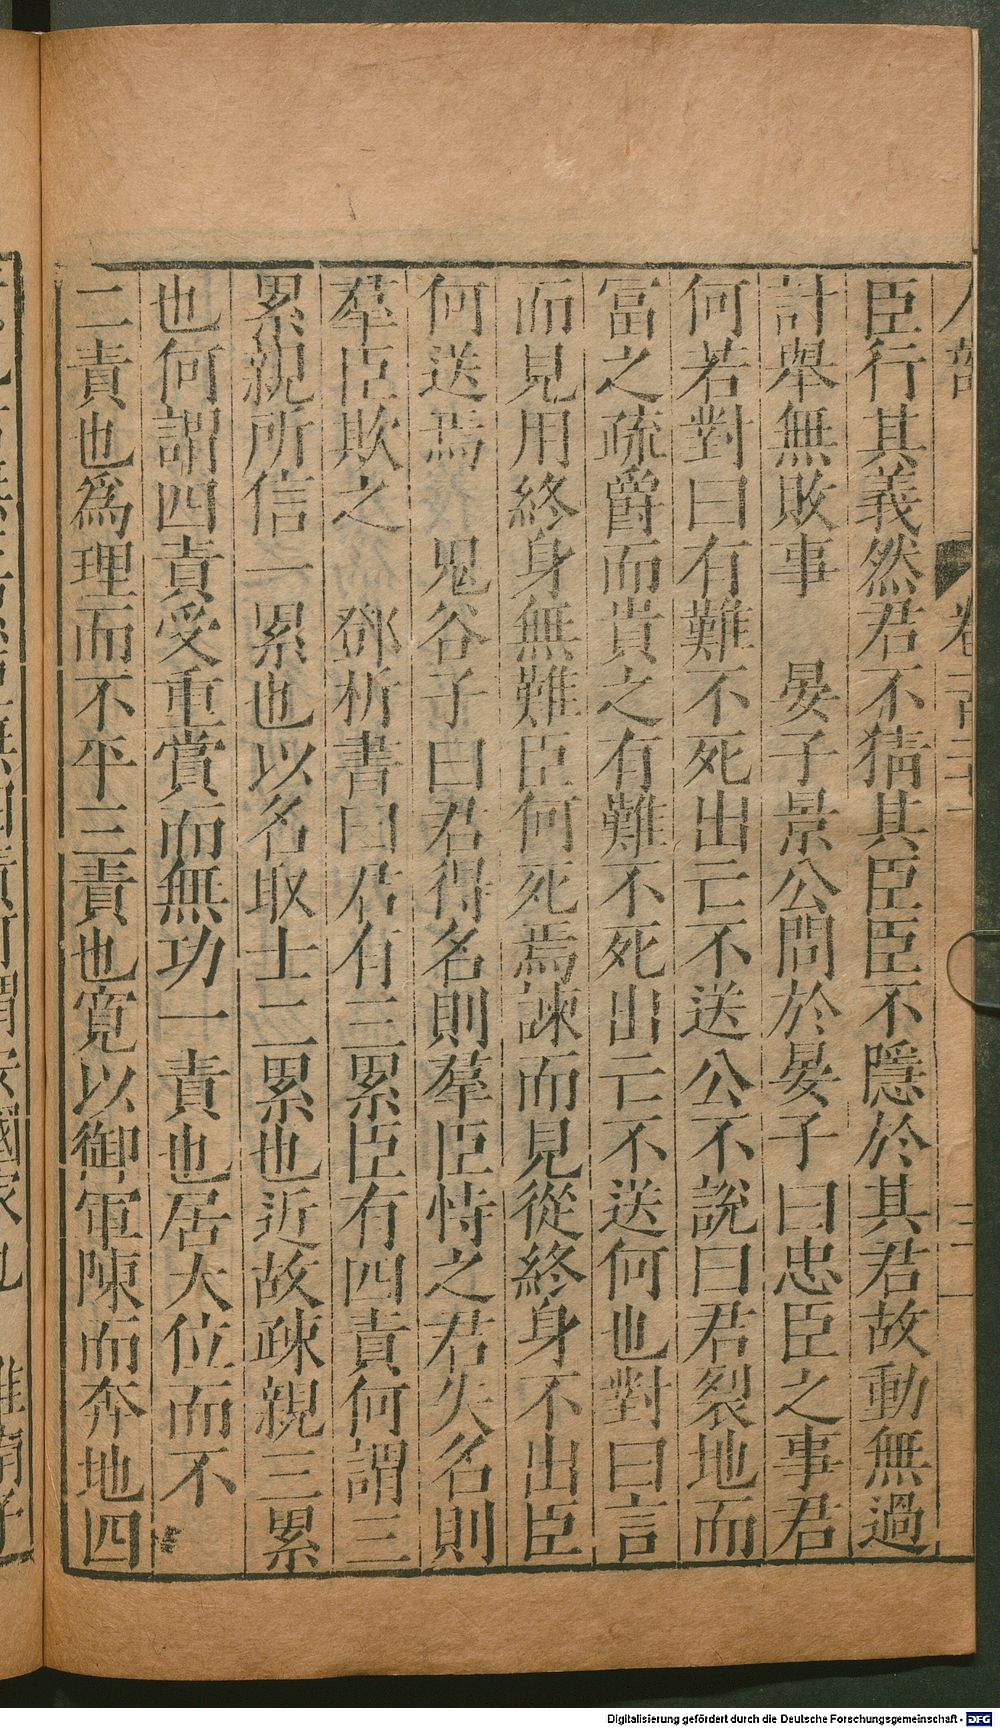 臣行其義然君不猜其臣臣不隱於其君故動無過
計舉無敗事　晏子景公問於晏子曰忠臣之事君
何若對曰有難不死出亡不送公不說曰君裂地而
富之疏爵而貴之有難不死出亡不送何也對曰言
而見用終身無難臣何死焉諫而見從終身不出臣
何送焉　鬼谷子曰君得名則羣臣恃之君失名則
羣臣欺之　鄧析書曰君有三累臣有四責何謂三
累親所信一累也以名取士二累也近故疎親三累
也何謂四責受重賞而無功一責也居大位而不
二責也為理而不平三責也寬以御軍陳而奔北四
Digitalisierung gefördert durch die Deutsche Forschungsgemeinschaft - DFG